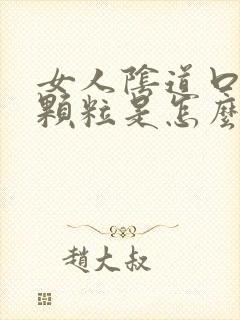 女人陰道口
顆粒是怎麼
趙大叔